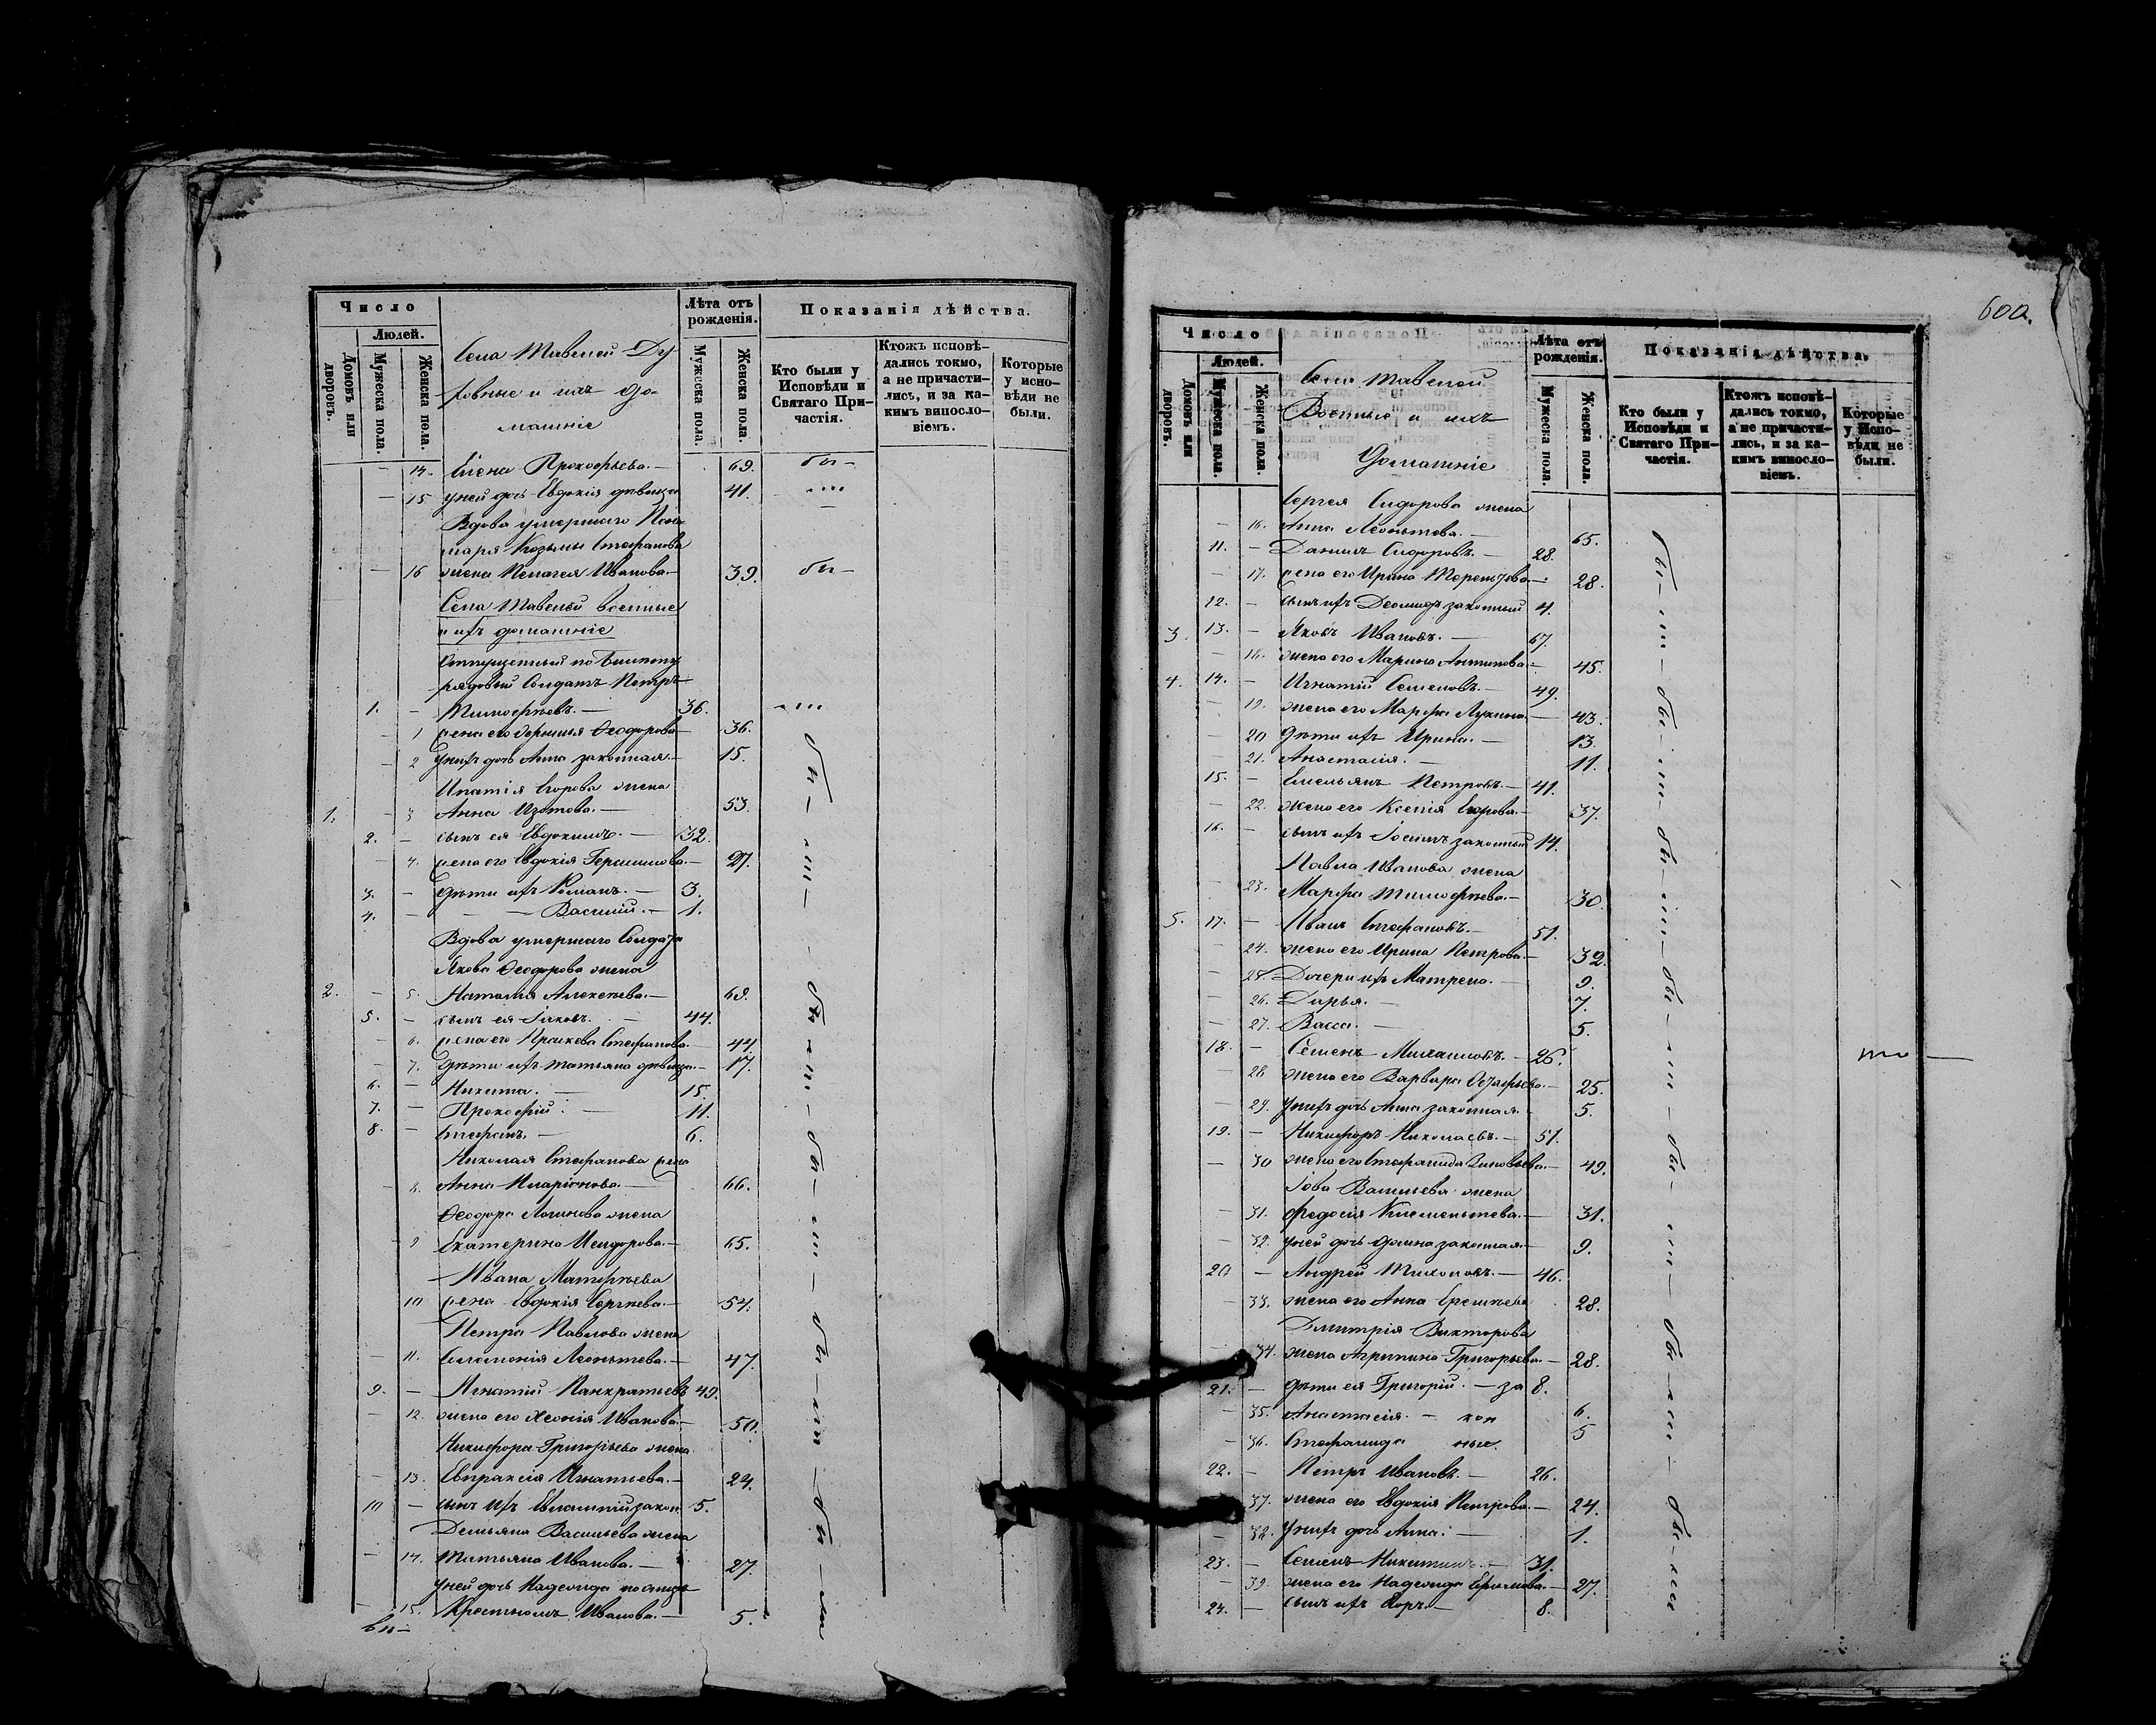 Число
Людей.
Домовъ или дворовъ.
Мужеска пола.
Женска пола.
Села Тавелей Ду-
ховные и ихъ до-
машніе
Лѣта отъ рожденія.
Мужеска пола.
Женска пола.
Показанія дѣйства.
Кто были у Исповѣди и Святаго При-частія.
Ктожъ исповѣ-дались токмо, а не причасти-лись, и за ка-кимъ винослo-віемъ.
Которые у испо-вѣди не были.
14. Елена Прокофьева.— 69. бы—
15 у ней дочь Евдокія дѣвица 41.
Вдова умершаго Поно
маря Козьмы Стефанова
16 жена Пелагея Иванова.— 39. бы—
Села Тавелей военные
и ихъ домашніе
Отпущенный по билету
рядовый Солдатъ Петръ
1. — Тимофеевъ.— 36.
— 1 жена его Ѳеодорова— 36.
— 2 у нихъ дочь Анна законная.— 15.
Ипатія Егорова жена
1. — 3 Анна Изотова.— 53.
2. — сынъ ея Евдокимъ.— 32.
— 4. жена его Евдокія Герасимова.— 27.
3. — дѣти ихъ Романъ.— 3.
4. — Василій.— 1.
Вдова умершаго Солдата
Якова Ѳеодорова жена
2. — 5. Наталія Алексеева.— 69.
5. — сынъ ея Іаковъ. 44.
— 6. жена его Прасковья Стефанова.— 44.
— 7. дѣти ихъ Татьяна дѣвица.— 17.
6. — Никита.— 15.
7. — Прокофій.— 11.
8. — Стефанъ.— 6.
Николая Стефанова жена
8. Анна Иларіонова.— 66.
Ѳеодора Логинова жена
9 Екатерина Исидорова.— 65.
Ивана Матфеева
10 жена Евдокія Сергеева.— 54.
Петра Павлова жена
— 11. Соломонія Леонтьева.— 47.
9. — Игнатій Панкратьевъ 49.
— 12. жена его Ксенія Иванова.— 50.
Никифора Григорьева жена
— 13. Евпраксія Игнатьева.— 24.
10 — сынъ ихъ закон. 5.
Демьяна Васильева жена
— 14. Татьяна Иванова.— 27.
у ней дочь Надежда по
— 15. Иванова.— 5.
600.
Число
Людей.
Домовъ или дворовъ.
Мужеска пола.
Женска пола.
Села Тавелей
Военные и ихъ
Домашніе
Лѣта отъ рожденія.
Мужеска пола.
Женска пола.
Показанія дѣйства.
Кто были у Исповѣди и Святаго При-частія.
Ктожъ исповѣ-дались токмо, а не причасти-лись, и за ка-кимъ винослo-віемъ.
Которые у Испо-вѣди не были.
Сергея Сидорова жена
— 16. Анна Леонтьева.— 65.
11. — Даніилъ Сидоровъ.— 28.
— 17. жена его Ирина Терентьева— 28.
12. — сынъ ихъ Деомидъ законный 4.
3. 13. — Яковъ Ивановъ.— 67.
— 18. жена его Марина Антипова.— 45.
4. 14. — Игнатій Семеновъ.— 49.
— 19. жена его Марфа Лукина.— 43.
— 20 дѣти ихъ Ирина.— 13.
— 21. Анастасія.— 11.
15. — Емельянъ Петровъ.— 41.
— 22. жена его Ксенія Егорова.— 37.
16. — сынъ ихъ Іоакимъ законный 14.
Павла Иванова жена
— 23. Марфа Тимофеева.— 30.
5. 17. — Иванъ Стефановъ.— 51.
— 24. жена его Ирина Петрова.— 32.
— 25. Дочери ихъ Матрена.— 9.
— 26. Дарья.— 7.
— 27. Васса.— 5.
18. — Семенъ Михаиловъ.— 26. то—
— 28 жена его Варвара Остафьева.— 25.
— 29. у нихъ дочь Анна законная.— 5.
19. — Никифоръ Николаевъ.— 51.
— 30 жена его Стефанида Зиновьева.— 49.
Іова Васильева жена
— 31. Федосія Клементьева.— 31.
— 32. у ней дочь Домна законная.— 9.
20 — Андрей Тихоновъ.— 46.
— 33. жена его Анна Еремеева 28.
Дмитрія Викторова
34. жена Агрипина Григорьева.— 28.
21. — дѣти ея Григорій.— за 8.
35. Анастасія.— кон 6.
— 36. Стефанида ные. 5
22. — Петръ Ивановъ.— 26.
37. жена его Евдокія Петрова.— 24.
— 38. у нихъ дочь Анна.— 1.
23. — Семенъ Никитинъ.— 31.
— 39. жена его Надежда Ермилова.— 27.
24. — сынъ ихъ Егоръ.— 8.